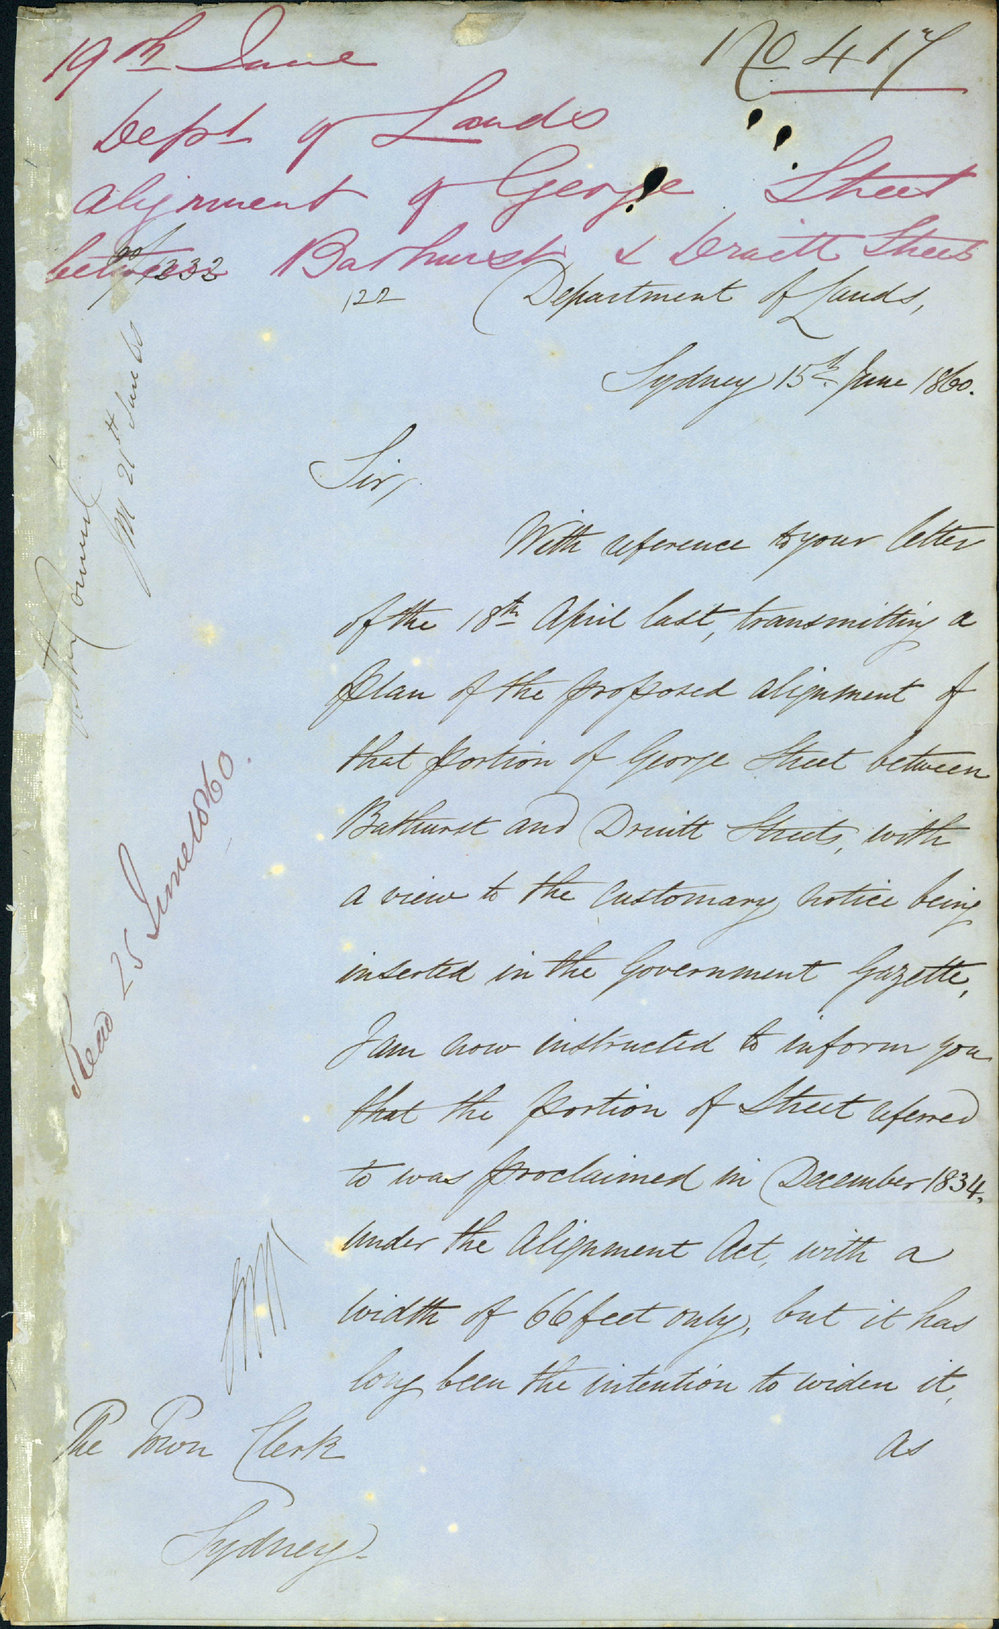 19th June
No 417
Dept of Lands
alignment of George Street
between Bathurst & Druitt Streets
60/1233
122
Department of Lands,
Sydney 15th June 1860.
Sir,
With reference to your letter
of the 18th April last, transmitting a
plan of the proposed alignment of
that portion of George Street between
Bathurst and Druitt Streets, with
a view to the customary notice being
inserted in the Government Gazette,
I am now instructed to inform you
that the portion of Street referred
to was proclaimed in December 1834,
under the Alignment Act, with a
width of 66 feet only, but it has
long been the intention to widen it,
as
The Town Clerk
Sydney
Council
21st June 60
Read 25 June 1860.